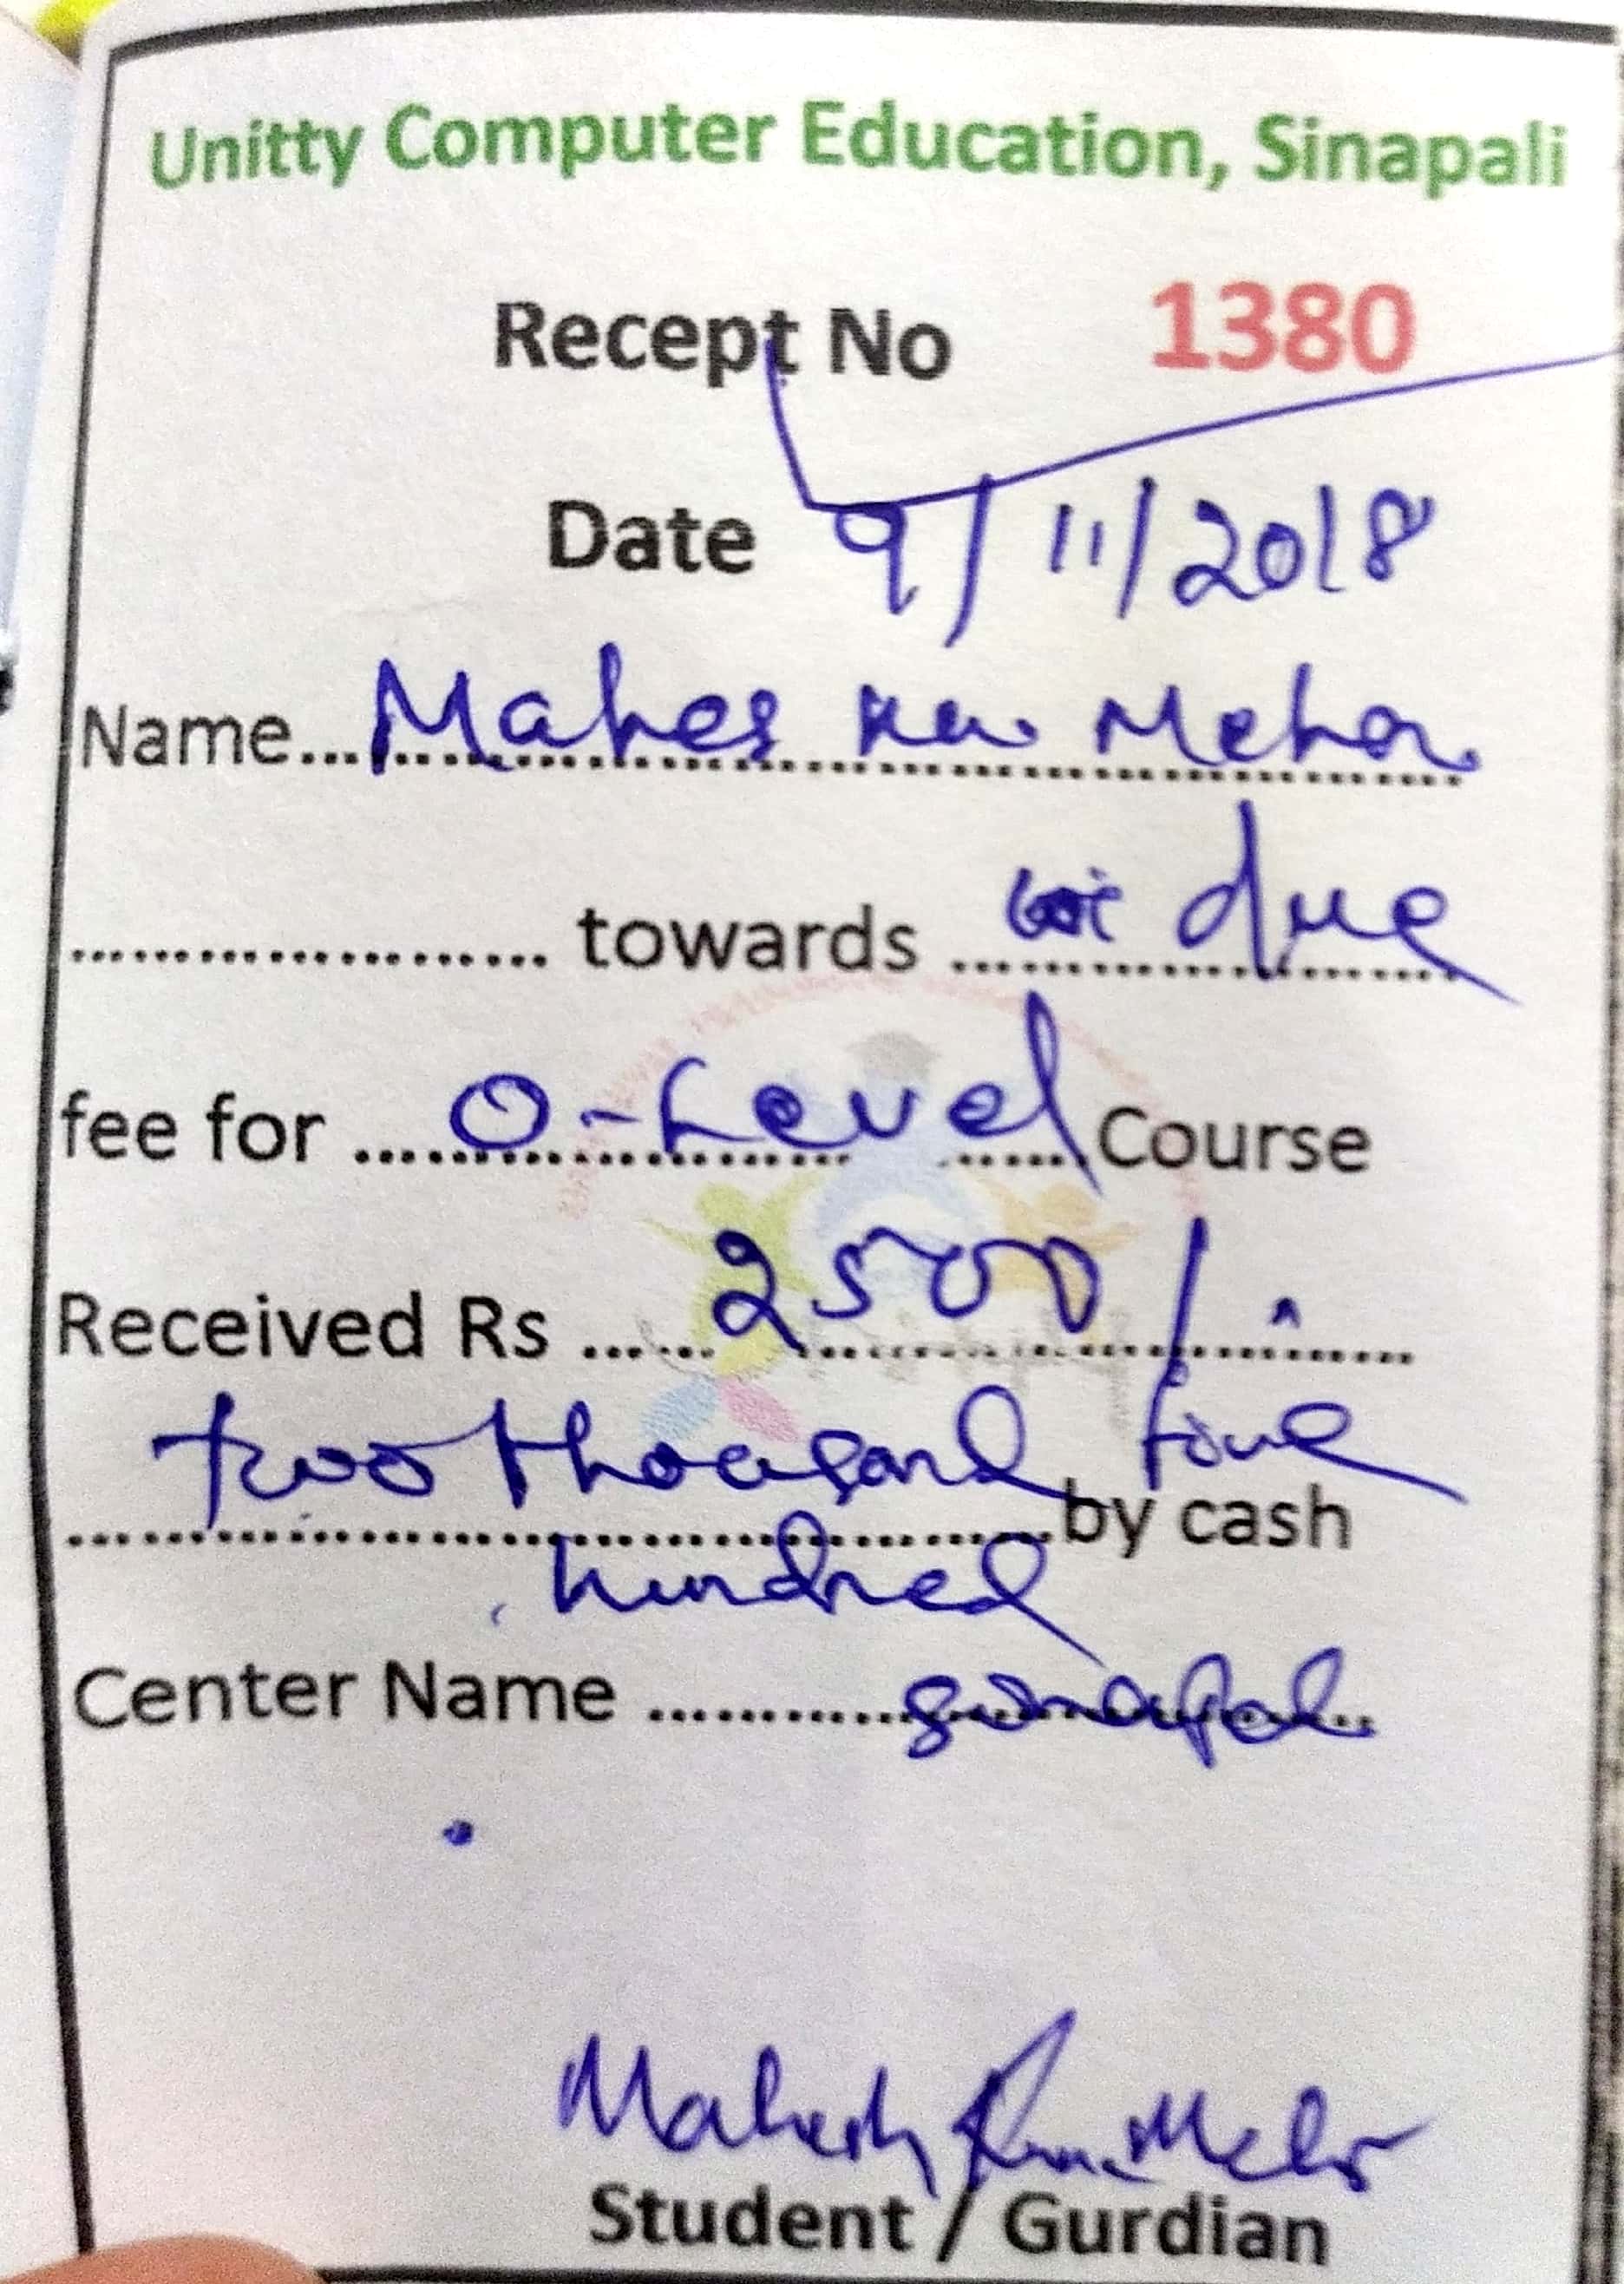 Unitty Computer Education, Sinapali
Recept No 1380
Date 9/11/2018
Name... Mahes Ku. Meher
.................... towards ... due
fee for ... O-Level Course
Received Rs ... 2500/-
two thousand five
.................... by cash
hundred
Center Name ... Sinapali
Mahesh Ku. Meher
Student / Gurdian